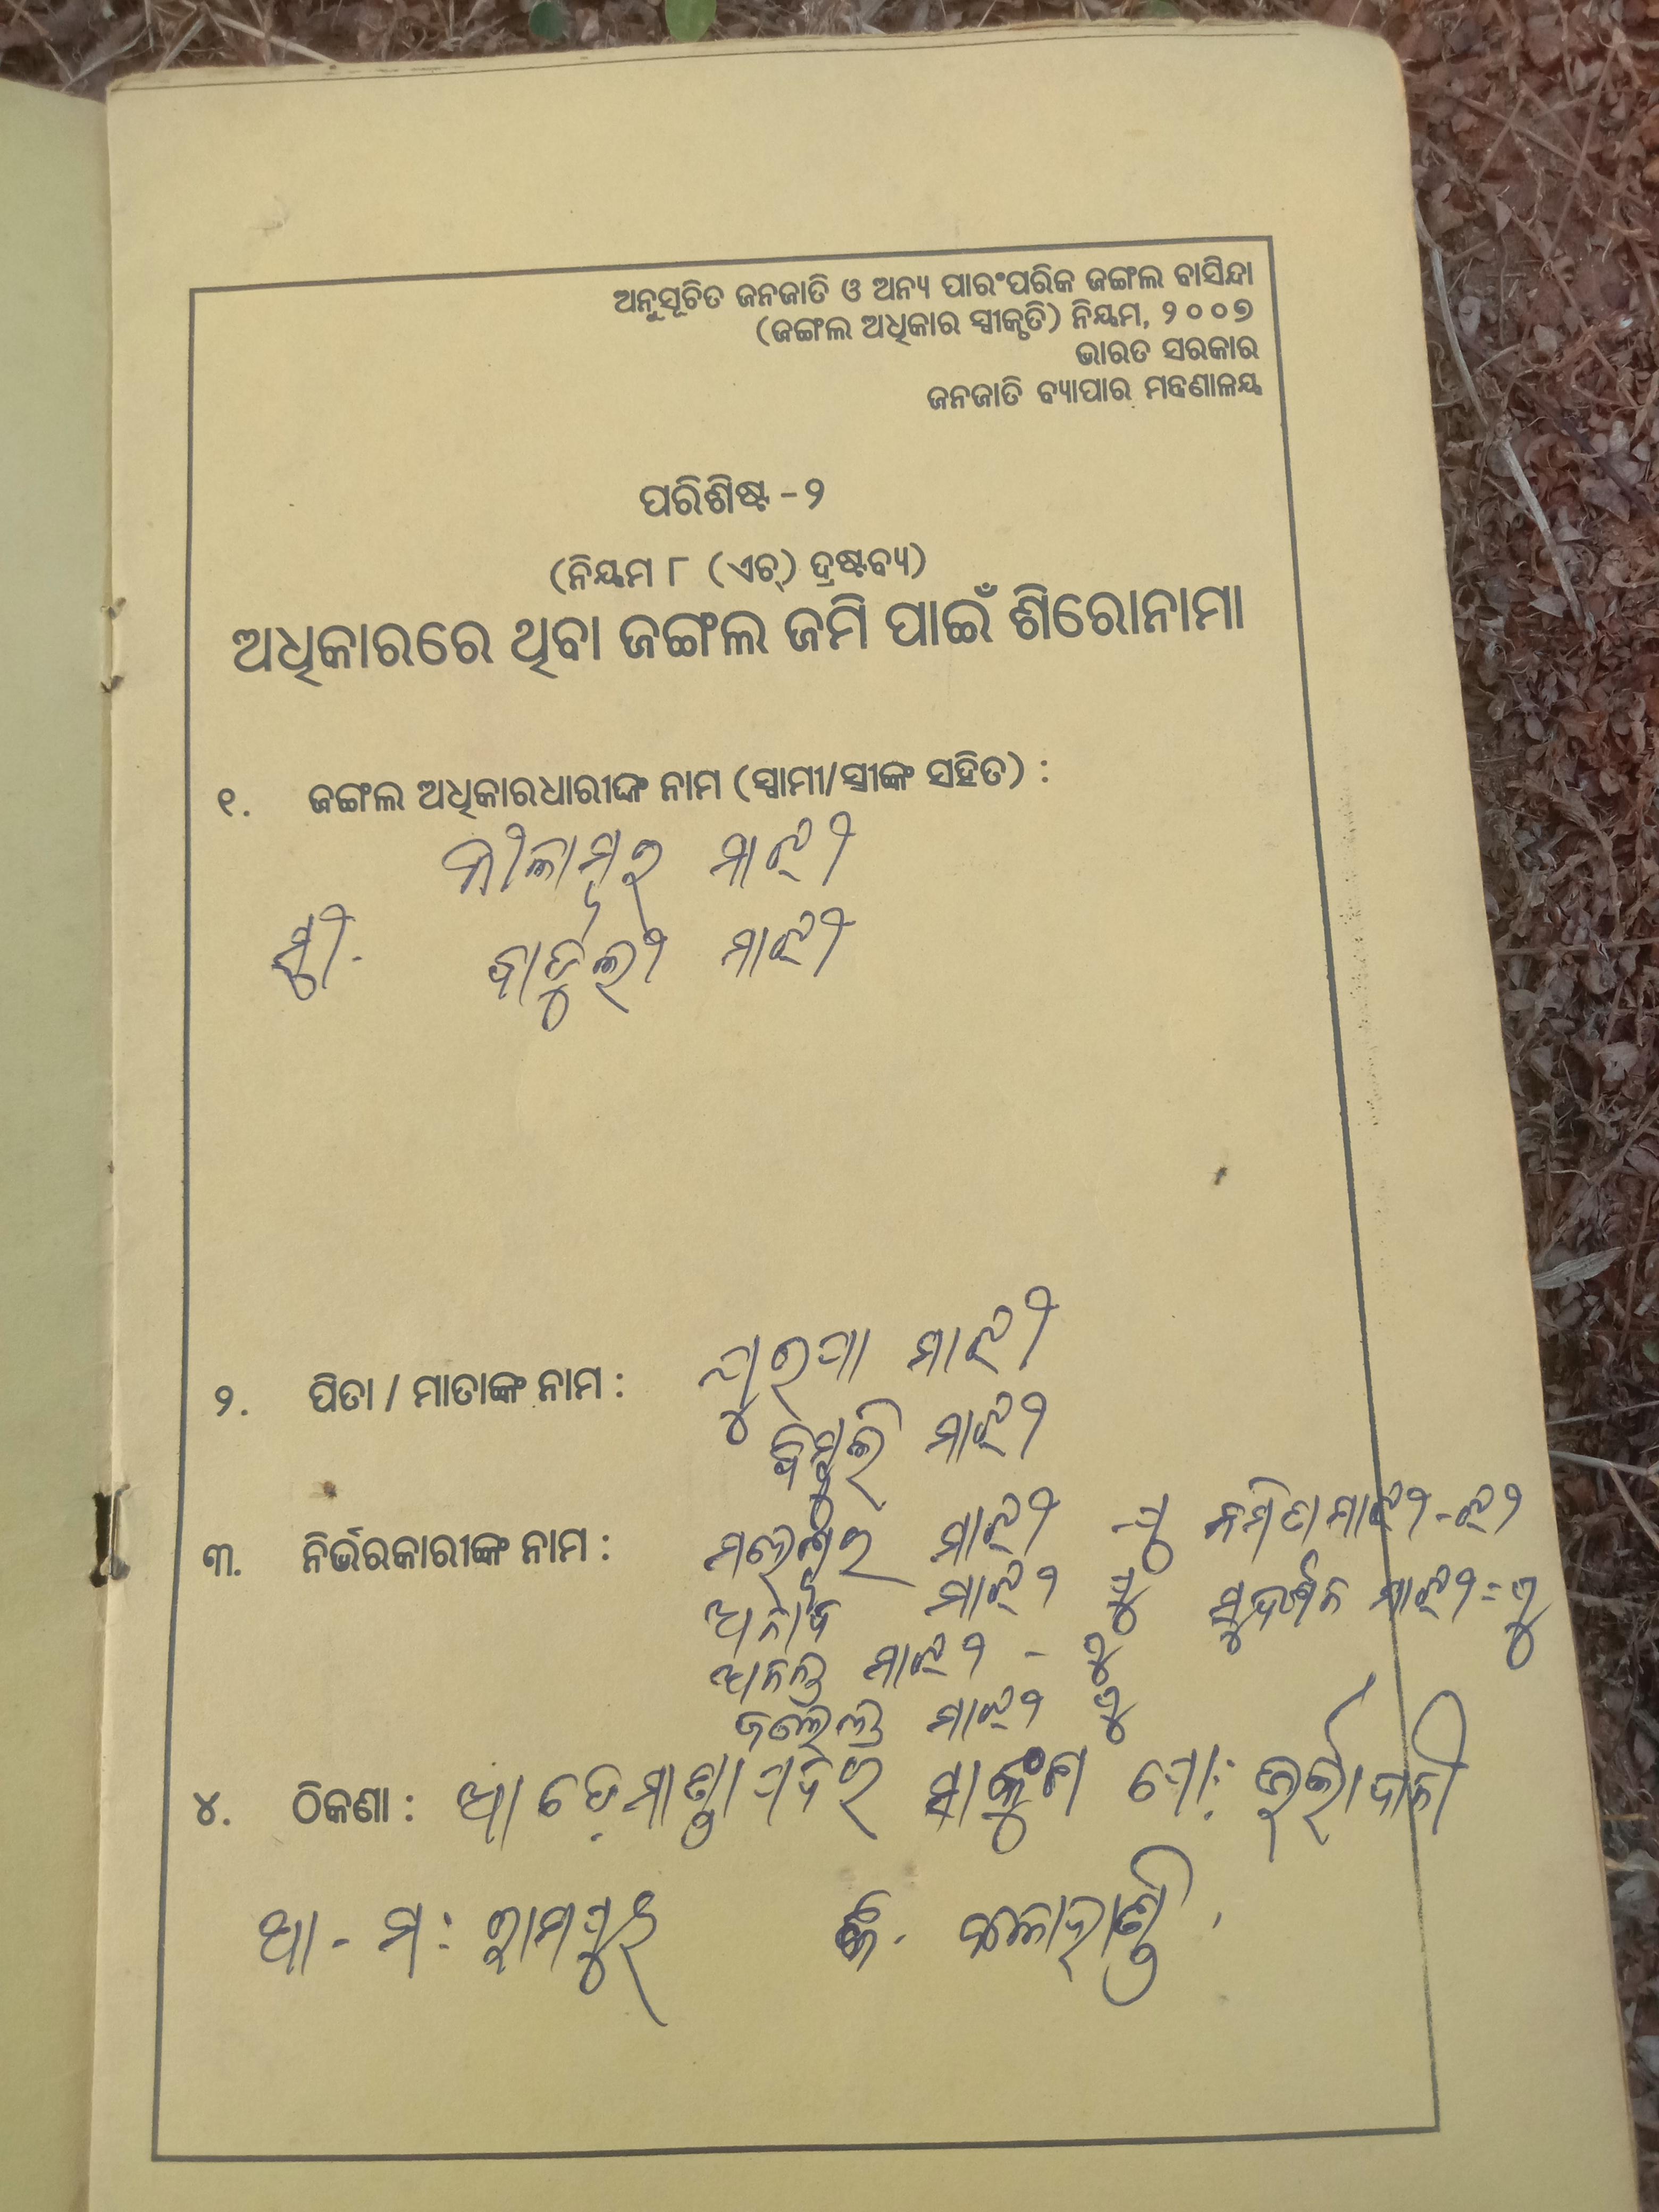 ଅନୁସୂଚିତ ଜନଜାତି ଓ ଅନ୍ୟ ପାରଂପରିକ ଜଙ୍ଗଲ ବାସିନ୍ଦା
(ଜଙ୍ଗଲ ଅଧିକାର ସ୍ୱୀକୃତି) ନିୟମ, ୨୦୦୭
ଭାରତ ସରକାର
ଜନଜାତି ବ୍ୟାପାର ମନ୍ତ୍ରଣାଳୟ
ପରିଶିଷ୍ଟ - ୨
(ନିୟମ ୮ (ଏଚ୍) ଦ୍ରଷ୍ଟବ୍ୟ)
ଅଧିକାରରେ ଥିବା ଜଙ୍ଗଲ ଜମି ପାଇଁ ଶିରୋନାମା
୧. ଜଙ୍ଗଲ ଅଧିକାରଧାରୀଙ୍କ ନାମ (ସ୍ୱାମୀ/ସ୍ତ୍ରୀଙ୍କ ସହିତ) :
ନୀଳାମ୍ବର ମାଝୀ
ସ୍ତ୍ରୀ- ମାଝୀ
୨. ପିତା / ମାତାଙ୍କ ନାମ : ମାଝୀ
ମାଝୀ
୩. ନିର୍ଭରକାରୀଙ୍କ ନାମ : ମାଝୀ - ପୁ ନମିତା ମାଝୀ - ଝୀ
ମାଝୀ ପୁ ସୁଦର୍ଶନ ମାଝୀ = ପୁ
ଅନନ୍ତ ମାଝୀ - ପୁ
ମାଝୀ ପୁ
୪. ଠିକଣା :
ଥା - ମ: ରାମପୁର ଜି. କଳାହାଣ୍ଡି